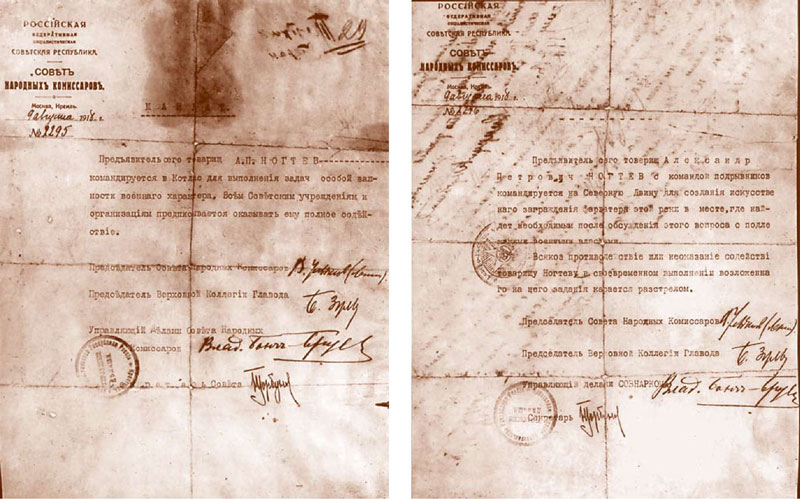 РОССІЙСКАЯ
ФЕДЕРАТИВНАЯ
СОЦІАЛИСТИЧЕСКАЯ
СОВѢТСКАЯ РЕСПУБЛИКА.
СОВѢТЪ
НАРОДНЫХЪ КОМИССАРОВЪ.
Москва, Кремль.
9 августа 1918 г.
№ 2295
Предъявитель сего товарищ А.П. НОГТЕВ
командируется в Котлас для выполнения задач особой важ-
ности военнаго характера. Всѣм Совѣтским учреждениям и
организациям предписывается оказывать ему полное содѣй-
ствие.
Предсѣдатель Совѣта Народных Комиссаров В. Ульянов (Ленин)
Предсѣдатель Верховной Коллегіи Главода
Управляющій Дѣлами Совѣта Народных
Комиссаров Влад. Бонч-Бруевич
Совѣта Горбунов
РОССІЙСКАЯ
ФЕДЕРАТИВНАЯ
СОЦІАЛИСТИЧЕСКАЯ
СОВѢТСКАЯ РЕСПУБЛИКА.
СОВѢТЪ
НАРОДНЫХЪ КОМИССАРОВЪ.
Москва, Кремль.
9 августа 1918 г.
Предъявитель сего товарищ Александр
Петрович НОГТЕВ с командой подрывников
командируется на Северную Двину для создания искусстве
наго заграждения фарватера этой реки в месте, где най-
дет необходимым после обсуждения этого вопроса с подле
жащими военными властями.
Всякое противодействие или неоказание содействі
товарищу Ногтеву в своевременном выполнении возложенна
го на него задания карается разстрелом.
Председатель Совѣта Народных Комиссаров В. Ульянов (Ленин)
Председатель Верховной Коллегіи Главода
Управляющий делами СОВНАРКОМА Влад. Бонч-Бруевич
Секретарь Горбунов